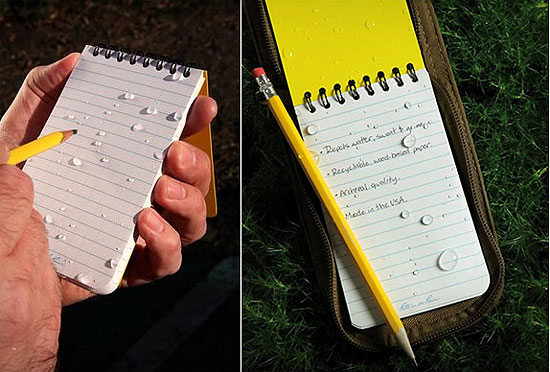 • Repels water, sweat & grease.
• Recyclable, wood-based paper.
• Archival quality.
• Made in the USA.
Rite in the Rain